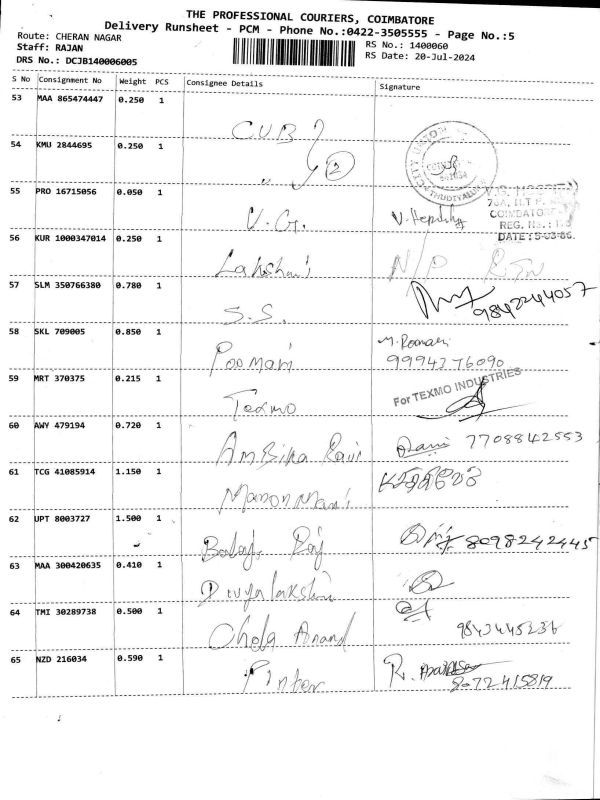 THE PROFESSIONAL COURIERS, COIMBATORE
Delivery Runsheet - PCM - Phone No.:0422-3505555 - Page No.:5
Route: CHERAN NAGAR
Staff: RAJAN
DRS No.: DCJB140006005
RS No.: 1400060
RS Date: 20-Jul-2024
S No Consignment No Weight PCS Consignee Details Signature
53 MAA 865474447 0.250 1 CUB
54 KMU 2844695 0.250 1 2
55 PRO 16715056 0.050 1 V.G.
COIMBATORE
REG. No.:
DATE:5-03-86.
56 KUR 1000347014 0.250 1 Lakshmi N/P
57 SLM 350766380 0.780 1 S.S. 9842244057
58 SKL 709005 0.850 1 Poomani M. Poomani
9994376090
59 MRT 370375 0.215 1 Texmo For TEXMO INDUSTRIES
60 AWY 479194 0.720 1 Ambika Ravi 7708842553
61 TCG 41085914 1.150 1 Manon Mani
62 UPT 8003727 1.500 1 Balaji Raj 8098242445
63 MAA 300420635 0.410 1 Divyalakshmi
64 TMI 30289738 0.500 1 Chola Anand 9843445236
65 NZD 216034 0.590 1 Pinter R.
8072415819